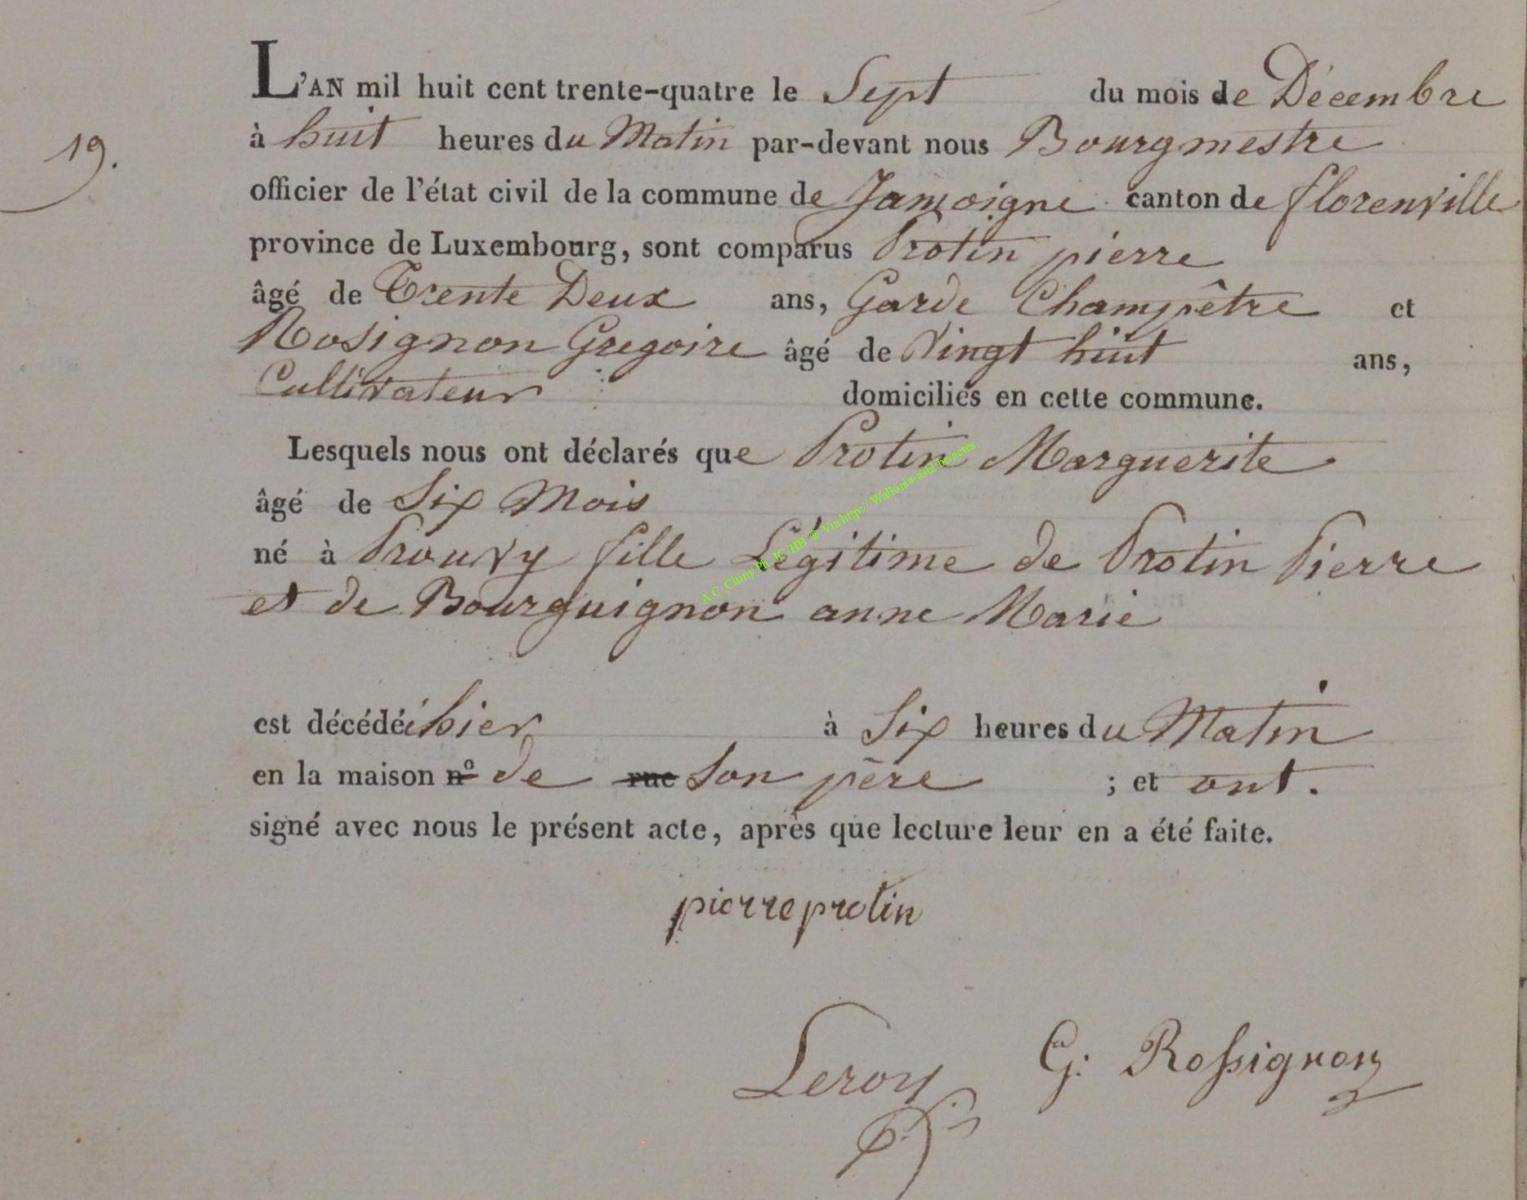 L'AN mil huit cent trente-quatre le Sept du mois de Décembre
19.
à huit heures du Matin par-devant nous Bourgmestre
officier de l'état civil de la commune de Jamoigne canton de florenville
province de Luxembourg, sont comparus Protin pierre
âgé de Trente Deux ans, Garde Champêtre et
Rosignon Gregoire âgé de Vingt huit ans,
Cultivateur domiciliés en cette commune.
Lesquels nous ont déclarés que Protin Marguerite
âgé de Six Mois
né à Prouvy fille Légitime de Protin Pierre
et de Bourguignon anne Marie
est décédée hier à Six heures du Matin
en la maison n° de rue Son père ; et ont.
signé avec nous le présent acte, après que lecture leur en a été faite.
pierre protin
Leroy
G: Rossignon